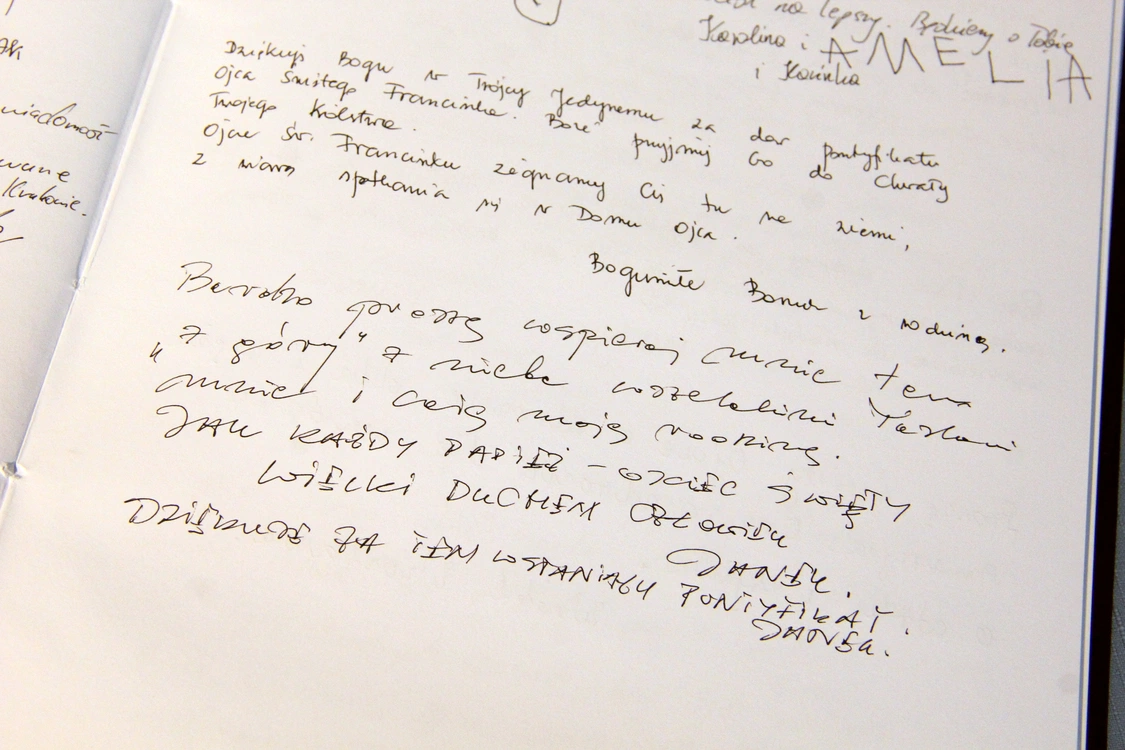 na lepszy. Będziemy o Tobie
Karolina i AMELIA
i Karinka
Dziękuję Bogu w Trójcy Jedynemu za dar pontyfikatu
Ojca Świętego Franciszka. Boże przyjmij Go do Chwały
Twojego Królestwa.
Ojcze Św. Franciszku żegnamy Cię tu na ziemi,
z wiarą spotkania się w Domu Ojca.
Bogumiła z rodziną.
Bardzo proszę wspieraj mnie teraz
"z góry" z nieba wszelkimi łaskami
mnie i całą moją rodzinę.
JAK KAŻDY PAPIEŻ – OJCIEC ŚWIĘTY
WIELKI DUCHEM CZŁOWIEK
JANEK.
DZIĘKUJĘ ZA TEN WSPANIAŁY PONTYFIKAT.
wane
Krakowie.